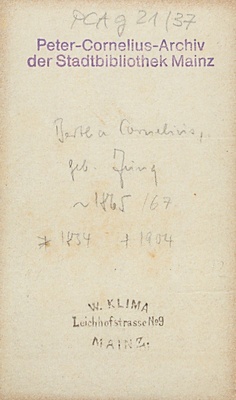 PCA g 21/37
Peter-Cornelius-Archiv
der Stadtbibliothek Mainz
Bertha Cornelius,
geb. Jung
~ 1865 /67
* 1834 † 1904
W. KLIMA
Leichhofstrasse No 9
MAINZ.